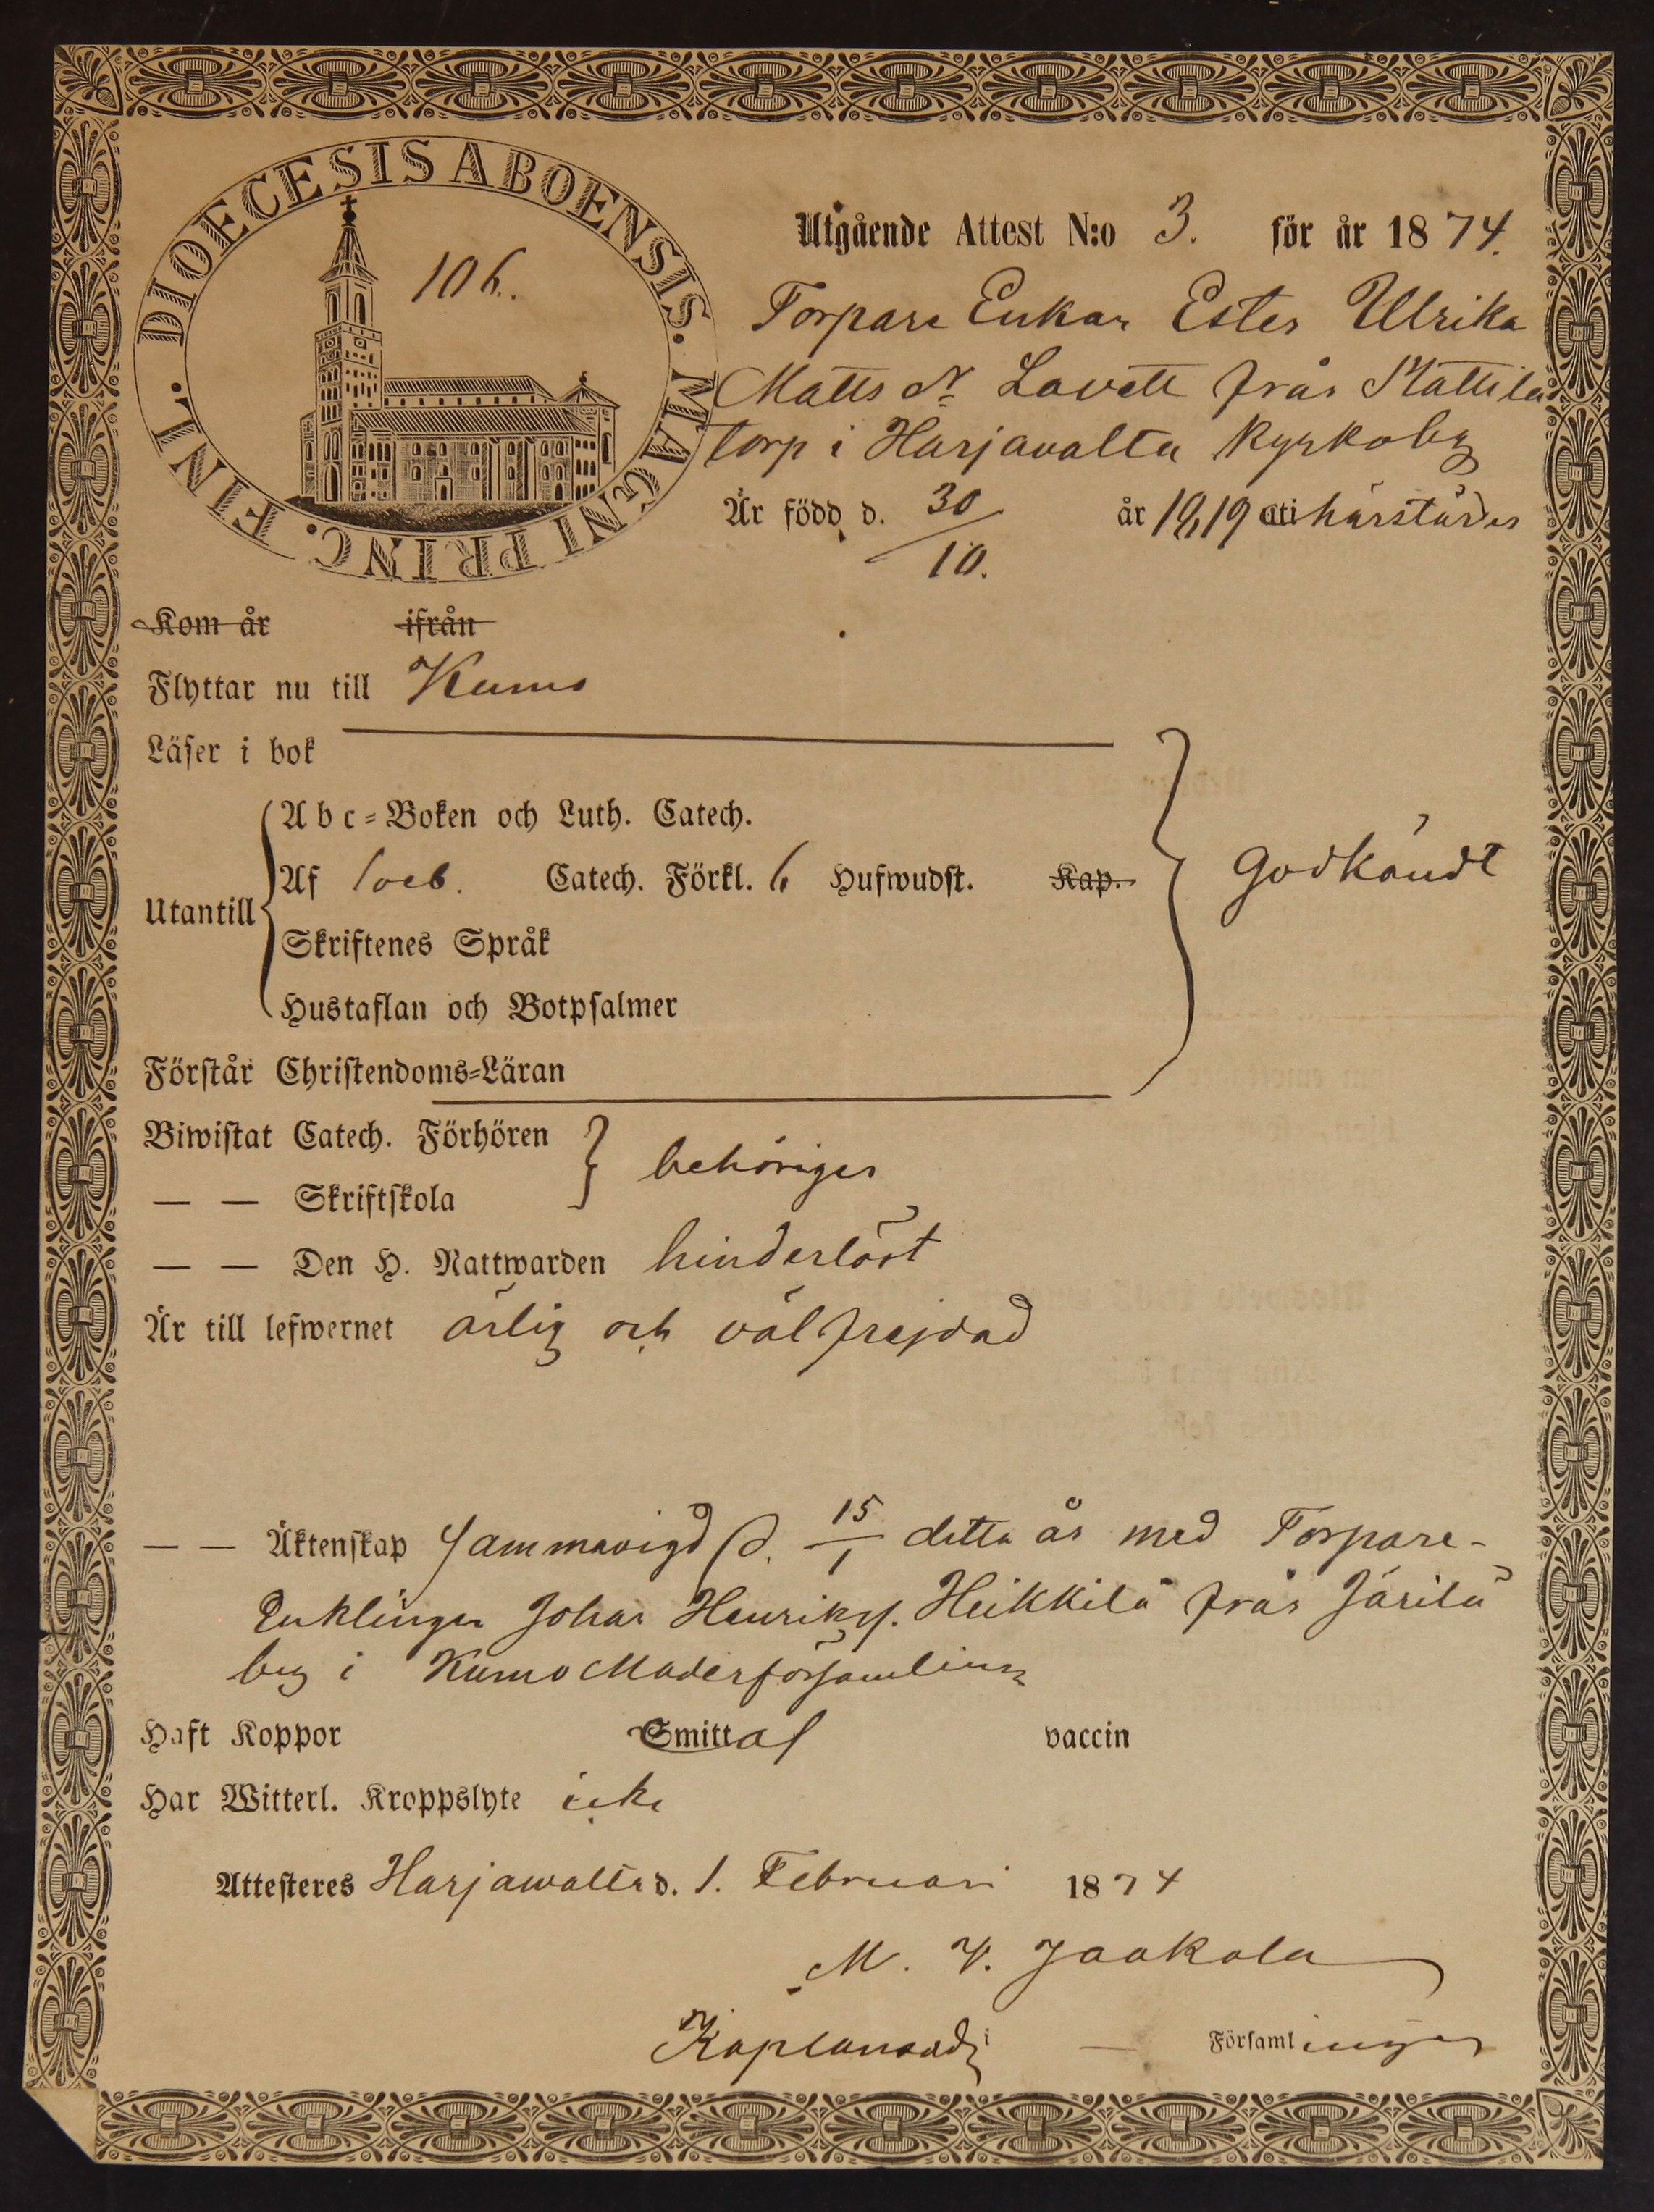 DIOECESIS ABOENSIS. MAGNI PRINC. FINL.
106.
Utgående Attest N:o 3. för år 1874.
Torpare Enkan Ester Ulrika
Matts dr Lovett från Mattila
torp i Harjavalta Kyrkoby
Är född d. 30/10. år 1819 uti härstädes
Kom år ifrån
Flyttar nu till Kumo
Läser i bok
Abc-Boken och Luth. Catech.
Utantill Af Sveb. Catech. Förkl. 6 Hufwudst. Kap. Godkändt
Skriftenes Språk
Hustaflan och Botpsalmer
Förstår Christendoms-Läran
Biwistat Catech. Förhören behörigen
— — Skriftskola
— — Den H. Nattwarden hinderlöst
Är till lefwernet ärlig och välfrejdad
— — Äktenskap Sammanvigd d. 15/1 detta år med Torpare-
Enklingen Johan Henriks s. Heikkilä från Järilä
by i Kumo Moderförsamling
Haft Koppor Smitt af vaccin
Har Witterl. Kroppslyte icke
Attesteres Harjawalta d. 1. Februari 1874
M. V. Jaakola
Kaplansadj i — Församlingen